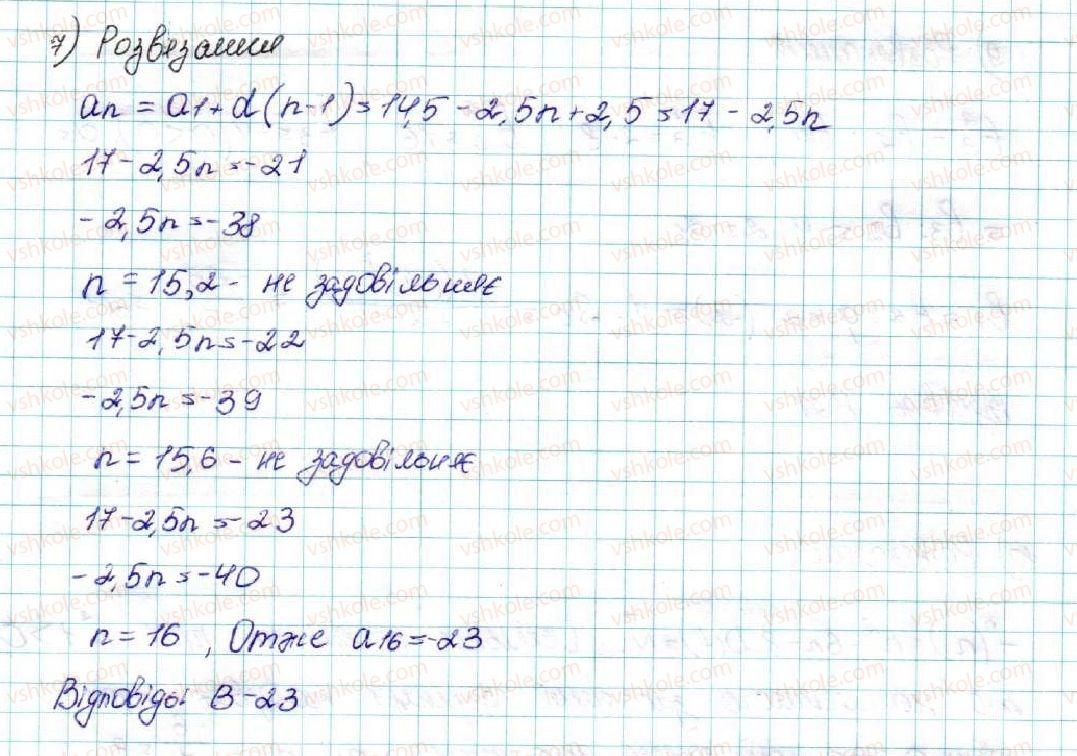 7) Розвязання
an = a1 + d(n-1) = 14,5 - 2,5n + 2,5 = 17 - 2,5n
17 - 2,5n = -21
-2,5n = -38
n = 15,2 - не задовільняє
17 - 2,5n = -22
-2,5n = -39
n = 15,6 - не задовільняє
17 - 2,5n = -23
-2,5n = -40
n = 16 , Отже a16 = -23
Відповідь: В -23